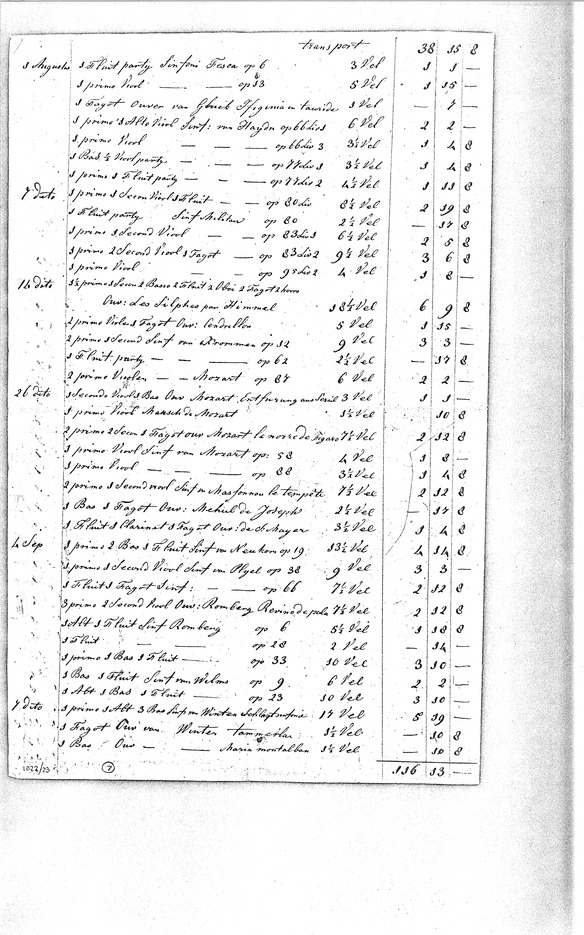 transport 38 15 8
1 Augustus 1 Fluit party Sinfoni Fesca op 6 3 Vel 1 1 —
1 primo Viool — — op 13 5 Vel 1 15 —
1 Fagot Ouver van Gluck Ifigenia in tauride 1 Vel — 7 —
1 primo 1 Alto Viool Sinf: van Haydn op 66 6 Vel 2 2 —
1 primo Viool — — — op 66 3 3½ Vel 1 4 8
1 Bas ½ Viool party — — — op 77 1 3½ Vel 1 4 8
1 primo 1 Fluit party — — op 77 2 4½ Vel 1 11 8
7 dito 1 primo 1 Secon Viool 1 Fluit — op 80 8½ Vel 2 19 8
1 Fluit party Sinf Militair op 80 2½ Vel — 17 8
1 primo 1 Second Viool — — op 83 1 6½ Vel 2 5 8
1 primo 2 Second Viool 1 Fagot — op 83 2 9½ Vel 3 6 8
1 primo Viool — — — op 95 2 4 Vel 1 8 —
14 dito primo 1 Secon 2 Basso 2 Fluit 2 Oboi 2 Fagot 2 horn
Ouv: Les Silphes par Himmel 18½ Vel 6 9 8
2 primo Viole 1 Fagot Ouv: Cendrillon 5 Vel 1 15 —
2 primo 1 Second Sinf van Krommer op 12 9 Vel 3 3 —
1 Fluit party — — — op 62 2½ Vel — 17 8
2 primo Violen — — Mozart op 87 6 Vel 2 2 —
26 dito 1 Secondo Viool 1 Bas Ouv Mozart Entfurung aus Serail 3 Vel 1 1 —
1 primo Viool Marsch de Mozart 1½ Vel 10 8
2 primo 2 Secon 1 Fagot ouv Mozart le nozze de Figaro 7½ Vel 2 12 8
1 primo Viool Sinf van Mozart op: 58 4 Vel 1 8 —
1 primo Viool — — — op 88 3½ Vel 1 4 8
2 primo 1 Second viool Sinf van Massonnou le tempête 7½ Vel 2 12 8
1 Bas 1 Fagot Ouv: Mehul de Joseph 2½ Vel — 17 8
1 Fluit 1 Clarinat 1 Fagot Ouv: de S. Mayer 3½ Vel 1 4 8
4 Sep 1 primo 2 Bas 1 Fluit Sinf van Neukom op 19 13½ Vel 4 14 8
1 primo 1 Second Viool Sinf van Plyel op 38 9 Vel 3 3 —
1 Fluit 1 Fagot Sinf: — — op 66 7½ Vel 2 12 8
3 primo 2 Second Viool Ouv: Romberg 7½ Vel 2 12 8
1 Alt 1 Fluit Sinf Romberg op 6 5½ Vel 1 18 8
1 Fluit — — op 28 2 Vel — 14 —
1 primo 1 Bas 1 Fluit — — op 33 10 Vel 3 10 —
1 Bas 1 Fluit Sinf van Wilms op 9 6 Vel 2 2 —
1 Abt 1 Bas 1 Fluit op 23 10 Vel 3 10 —
7 dito 1 primo 1 Alt 3 Bas Sinf van Winter Schlagtsinfonie 17 Vel 5 19 —
1 Fagot Ouv van Winter Tammerlan 1½ Vel — 10 8
1 Bas Ouv — — Maria montalban 1½ Vel — 10 8
1022/23 7 116 13 —